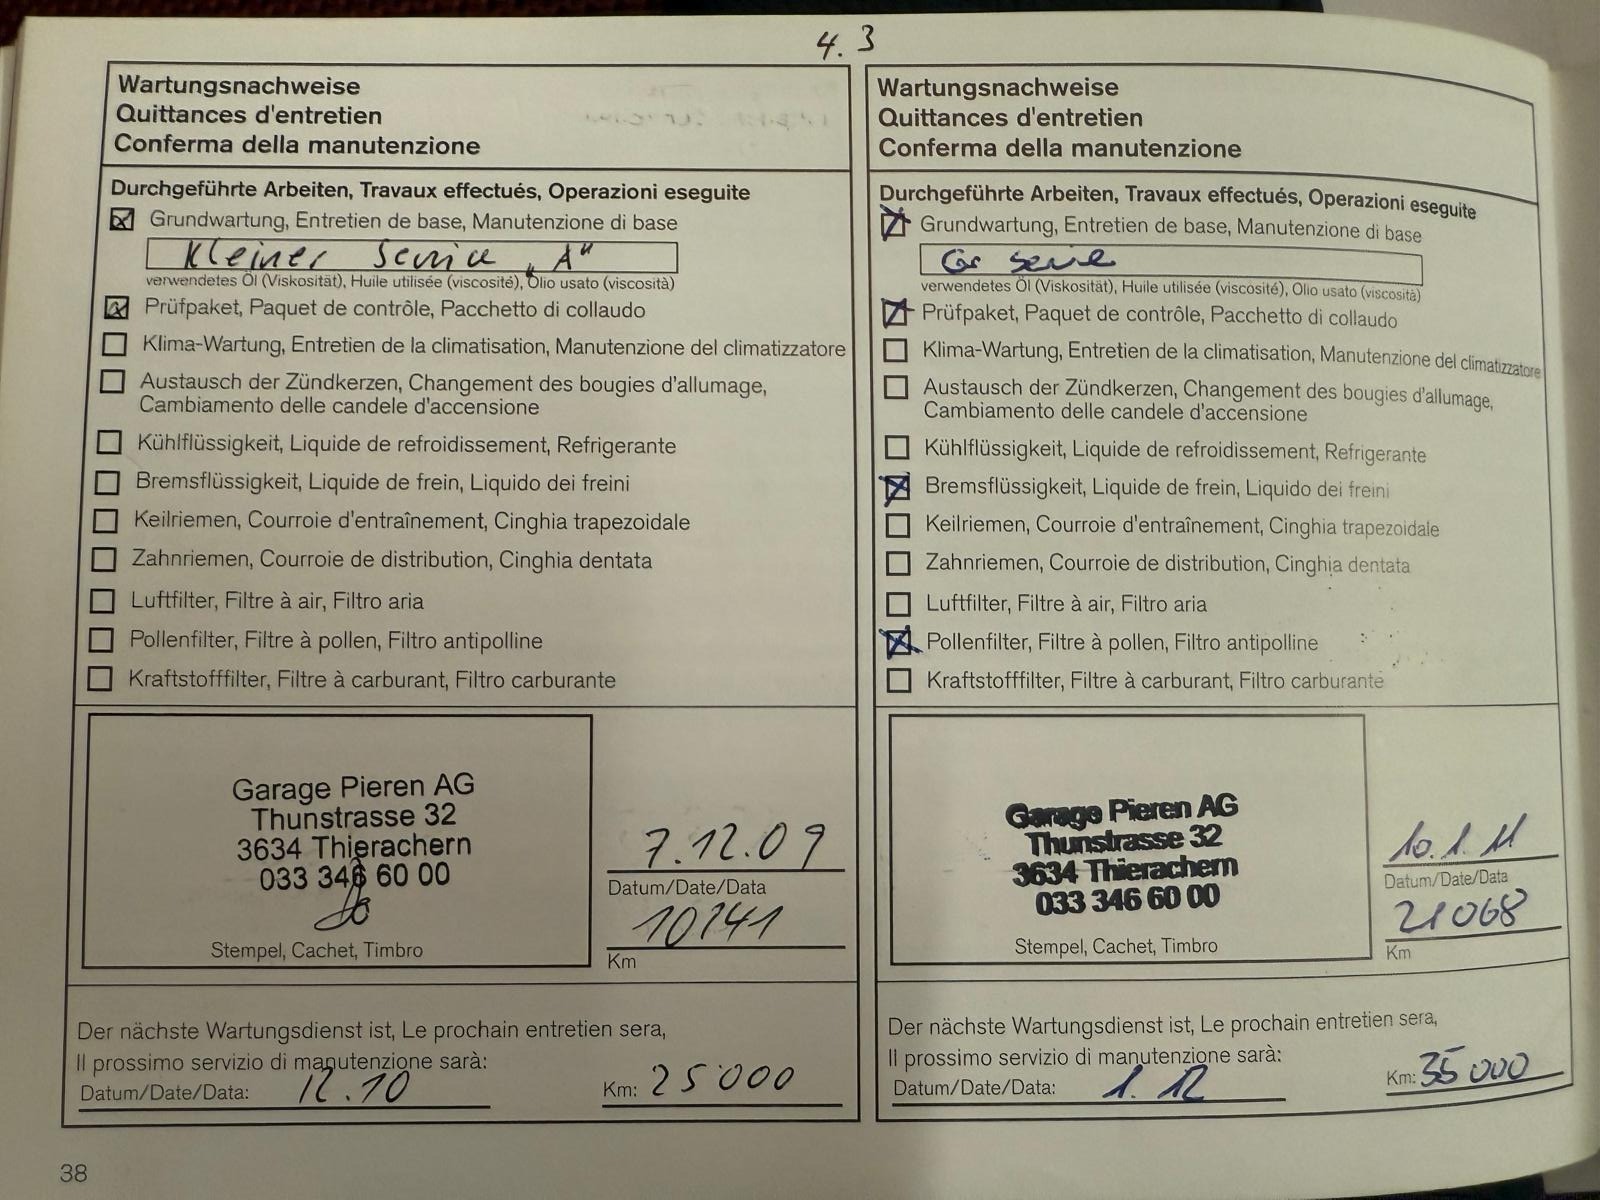 4.3
Wartungsnachweise
Quittances d'entretien
Conferma della manutenzione
Durchgeführte Arbeiten, Travaux effectués, Operazioni eseguite
Grundwartung, Entretien de base, Manutenzione di base
Kleiner Service „A"
verwendetes Öl (Viskosität), Huile utilisée (viscosité), Olio usato (viscosità)
Prüfpaket, Paquet de contrôle, Pacchetto di collaudo
Klima-Wartung, Entretien de la climatisation, Manutenzione del climatizzatore
Austausch der Zündkerzen, Changement des bougies d'allumage,
Cambiamento delle candele d'accensione
Kühlflüssigkeit, Liquide de refroidissement, Refrigerante
Bremsflüssigkeit, Liquide de frein, Liquido dei freini
Keilriemen, Courroie d'entraînement, Cinghia trapezoidale
Zahnriemen, Courroie de distribution, Cinghia dentata
Luftfilter, Filtre à air, Filtro aria
Pollenfilter, Filtre à pollen, Filtro antipolline
Kraftstofffilter, Filtre à carburant, Filtro carburante
Garage Pieren AG
Thunstrasse 32
3634 Thierachern
033 346 60 00
Stempel, Cachet, Timbro
7.12.09
Datum/Date/Data
10741
Km
Der nächste Wartungsdienst ist, Le prochain entretien sera,
Il prossimo servizio di manutenzione sarà:
Datum/Date/Data: 12.10
Km: 25'000
38
Wartungsnachweise
Quittances d'entretien
Conferma della manutenzione
Durchgeführte Arbeiten, Travaux effectués, Operazioni eseguite
Grundwartung, Entretien de base, Manutenzione di base
verwendetes Öl (Viskosität), Huile utilisée (viscosité), Olio usato (viscosità)
Prüfpaket, Paquet de contrôle, Pacchetto di collaudo
Klima-Wartung, Entretien de la climatisation, Manutenzione del climatizzatore
Austausch der Zündkerzen, Changement des bougies d'allumage,
Cambiamento delle candele d'accensione
Kühlflüssigkeit, Liquide de refroidissement, Refrigerante
Bremsflüssigkeit, Liquide de frein, Liquido dei freini
Keilriemen, Courroie d'entraînement, Cinghia trapezoidale
Zahnriemen, Courroie de distribution, Cinghia dentata
Luftfilter, Filtre à air, Filtro aria
Pollenfilter, Filtre à pollen, Filtro antipolline
Kraftstofffilter, Filtre à carburant, Filtro carburante
Garage Pieren AG
Thunstrasse 32
3634 Thierachern
033 346 60 00
Stempel, Cachet, Timbro
10.1.11
Datum/Date/Data
21068
Km
Der nächste Wartungsdienst ist, Le prochain entretien sera,
Il prossimo servizio di manutenzione sarà:
Datum/Date/Data: 1.12
Km: 35000